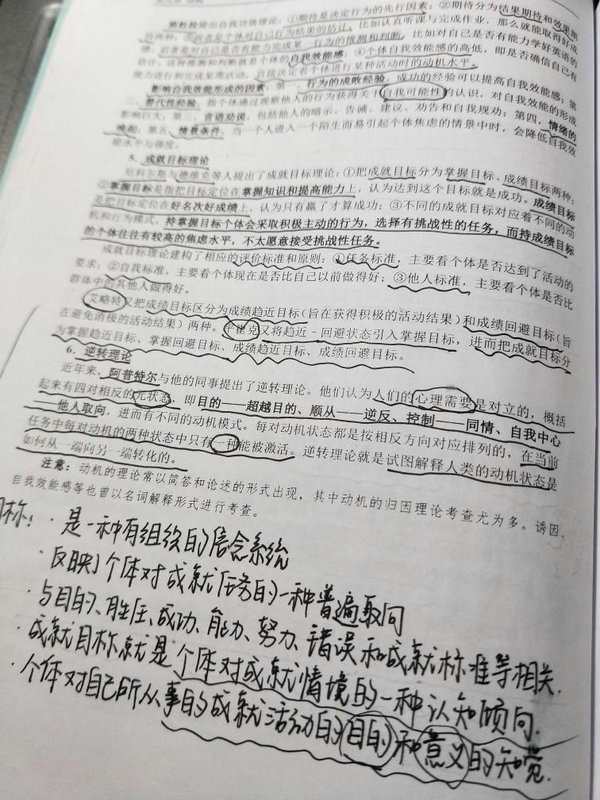 班杜拉提出自我效能理论：①期待是决定行为的先行因素；②期待分为结果期待和效果期
待两种；③前者是个体对自己行为结果的估计，比如认真听课与完成作业，那么就能取得好成
绩，后者是对自己是否有能力完成某一行为的推测和判断，比如对自己是否有能力学好英语的
估计，这种推测和判断就是个体的自我效能感；④个体自我效能感的高低，即是否确信自己有
能力进行和完成某类活动，直接决定着个体进行某种活动时的动机水平。
影响自我效能形成的因素：第一，行为的成败经验，成功的经验可以提高自我效能感；第
二，替代性经验，指个体通过观察他人的行为获得关于自我可能性的认识，对自我效能的形成
影响巨大；第三，言语劝说，包括他人的暗示、告诫、建议、劝告和自我规劝；第四，情绪的
唤起；第五，情景条件，当一个人进入一个陌生而易引起个体焦虑的情景中时，会降低自我效
能水平与强度。
5. 成就目标理论
尼科尔斯与德维克等人提出了成就目标理论：①把成就目标分为掌握目标、成绩目标两种；
②掌握目标是指把目标定位在掌握知识和提高能力上，认为达到这个目标就是成功。成绩目标
是把目标定位在好名次好成绩上，认为只有赢了才算成功；③不同的成就目标对应着不同的动
机和行为模式，持掌握目标个体会采取积极主动的行为，选择有挑战性的任务，而持成绩目标
的个体往往有较高的焦虑水平，不太愿意接受挑战性任务。
成就目标理论建构了相应的评价标准和原则：①任务标准，主要看个体是否达到了活动的
要求；②自我标准，主要看个体现在是否比自己以前做得好；③他人标准，主要看个体是否比
群体中的其他人做得好。
艾略特又把成绩目标区分为成绩趋近目标（旨在获得积极的活动结果）和成绩回避目标（旨
在避免消极的活动结果）两种。平崔克又将趋近－回避状态引入掌握目标，进而把成就目标分
为掌握趋近目标、掌握回避目标、成绩趋近目标、成绩回避目标。
6. 逆转理论
近年来，阿普特尔与他的同事提出了逆转理论。他们认为人们的心理需要是对立的，概括
起来有四对相反的元状态，即目的——超越目的、顺从——逆反、控制——同情、自我中心
——他人取向，进而有不同的动机模式。每对动机状态都是按相反方向对应排列的，在当前
任务中每对动机的两种状态中只有一种能被激活。逆转理论就是试图解释人类的动机状态是
如何从一端向另一端转化的。
注意：动机的理论常以简答和论述的形式出现，其中动机的归因理论考查尤为多。诱因、
自我效能感等也曾以名词解释形式进行考查。
目标：· 是一种有组织的信念系统
· 反映了个体对成就任务的一种普遍取向
· 与目的、胜任、成功、能力、努力、错误和成就标准等相关.
· 成就目标就是个体对成就情境的一种认知倾向.
· 个体对自己所从事的成就活动的目的和意义的知觉.